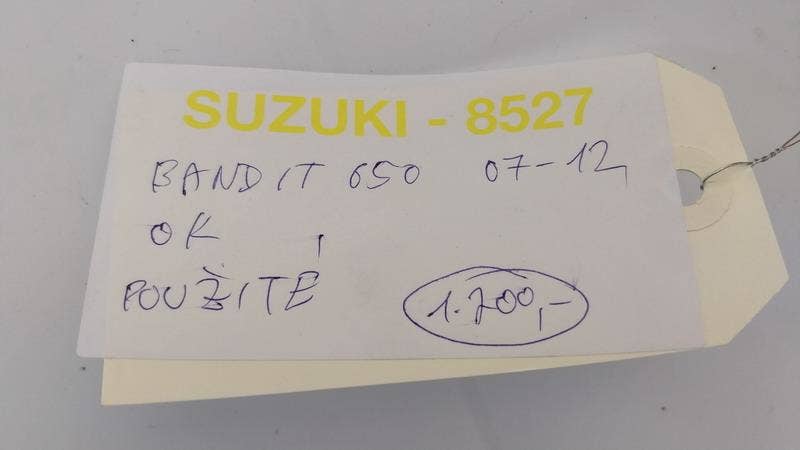 SUZUKI - 8527
BANDIT 650 07-12
OK
POUŽITÉ 1.700,-